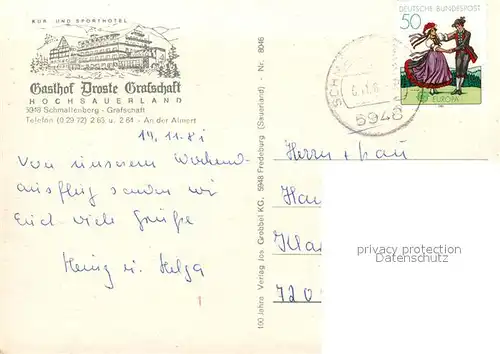 KUR- UND SPORTHOTEL
Gasthof Droste Grafschaft
HOCHSAUERLAND
5948 Schmallenberg - Grafschaft
Telefon (0 29 72) 2 63 u. 2 64 - An der Almert
14.11.81
Von unserem Wochend-
ausflug senden wir
Euch viele Grüße
Heinz u. Helga
100 Jahre Verlag Jos. Grobbel KG, 5948 Fredeburg (Sauerland) - Nr. 8046
DEUTSCHE BUNDESPOST
50
EUROPA
5948
Herrn + Frau
Ha
Kla
720
privacy protection
Datenschutz